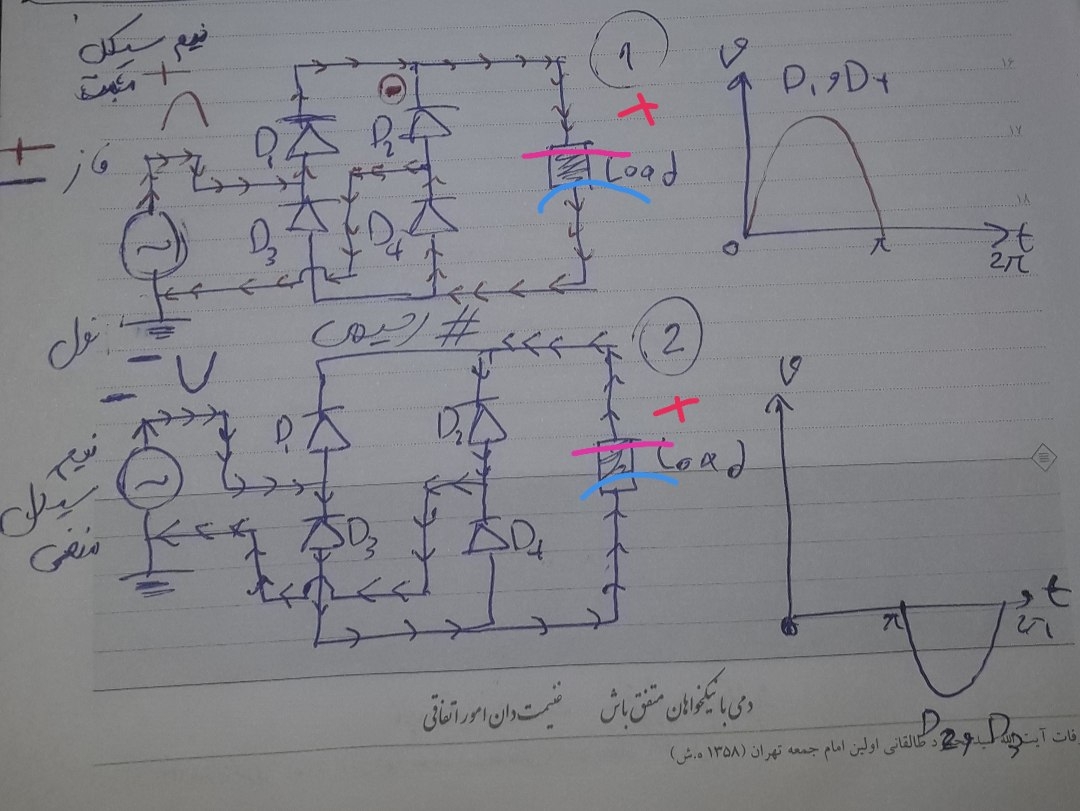 نیم سیکل
مثبت +
۱
+
v
D₁ و D۴
۱۶
+
−
فاز
D₁
D₂
Load
۱۷
~
D₃
D₄
۱۸
o
π
t
2π
نول
# رحیمی
2
−
−
v
نیم
سیکل
منفی
~
D₁
D₂
+
Load
D₃
D₄
π
t
2π
D₂ و D₃
دمی با نیکخواهان متفق باش غنیمت دان امور اتفاقی
طالقانی اولین امام جمعه تهران (۱۳۵۸ ه.ش)